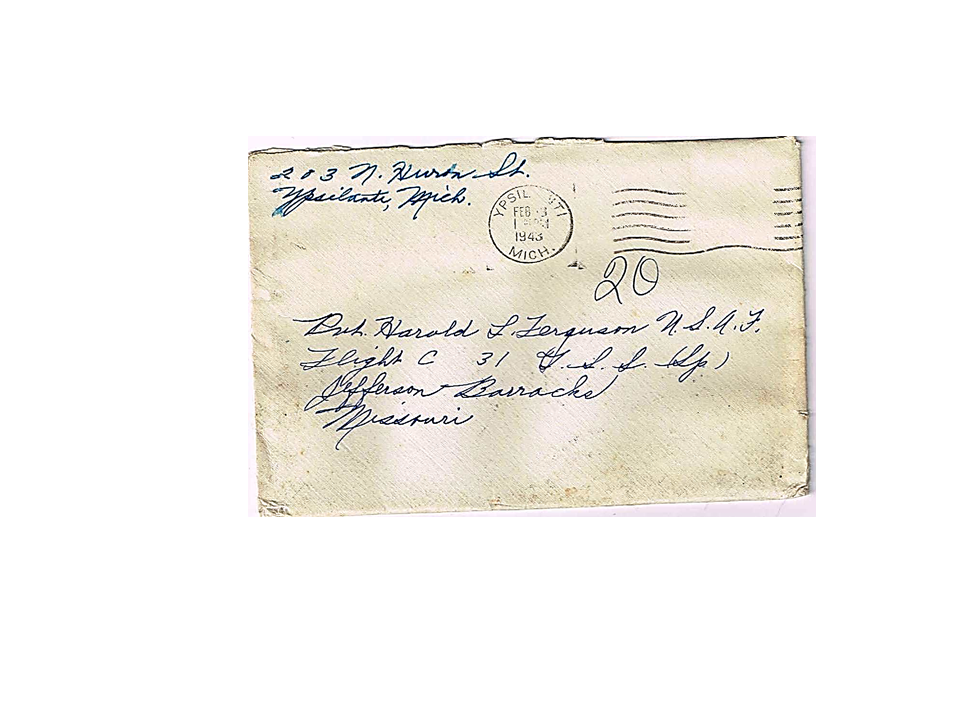 203 N. Huron St.
Ypsilanti, Mich.
YPSIL NTI
FEB 3
1
1943
MICH.
20
Pvt. Harold L. Ferguson U.S.A.F.
Flight C 31 T.S.S. (Sp)
Jefferson Barracks
Missouri